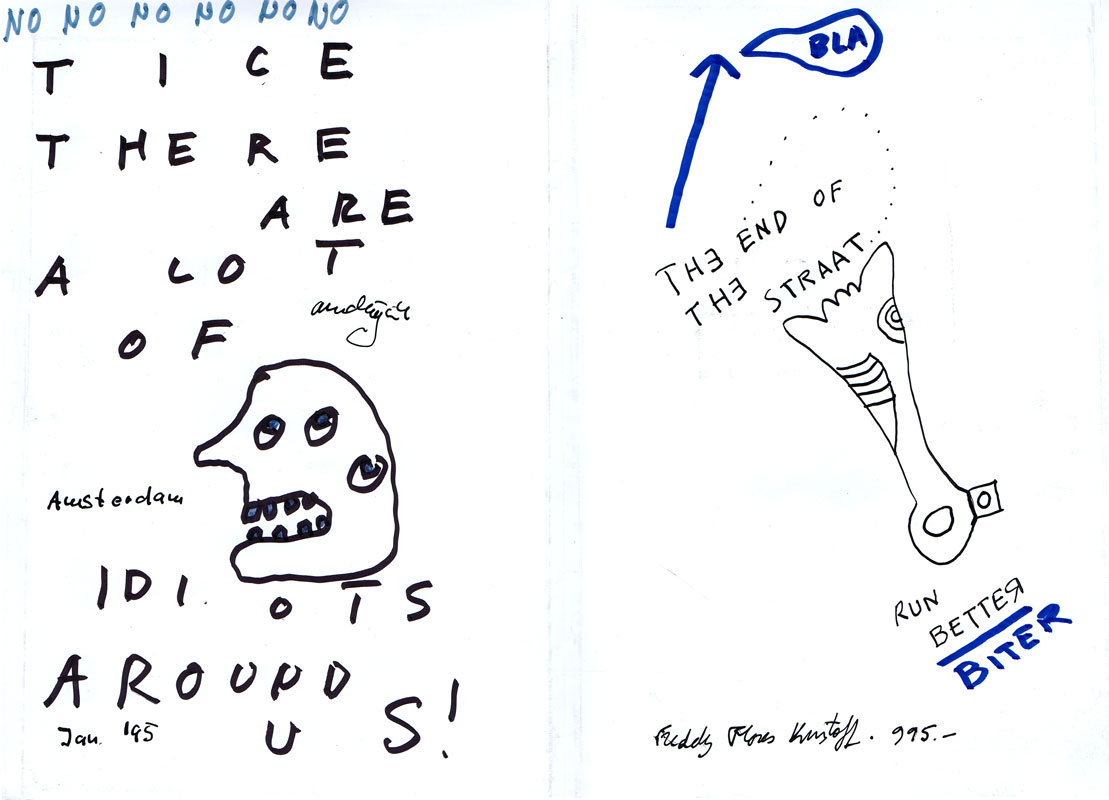 NO NO NO NO NO NO
T I C E
T H E R E
A R E
A L O T
O F
Amsterdam
I D I . O T S
A R O U N D
Jan. '95
U S !
BLA
THE END OF
THE STRAAT..
RUN
BETTER
BITER
Freddy Flores Knistoff. 995.-